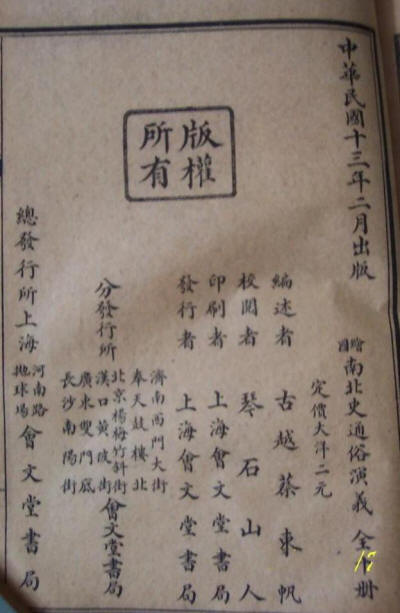 中華民國十三年二月出版
繪圖南北史通俗演義 全冊
定價大洋二元
版權所有
編述者 古越蔡東帆
校閱者 琴石山人
印刷者 上海會文堂書局
發行者 上海會文堂書局
分發行所
濟南西門大街
奉天鼓樓北
北京楊梅竹斜街
漢口黃陂街
廣東雙門底
長沙南陽街
會文堂書局
總發行所上海河南路拋球場會文堂書局